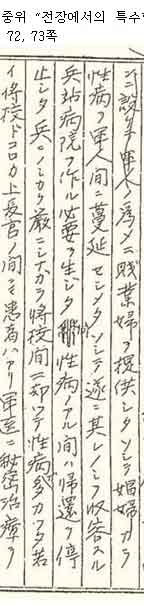 중위 "전장에서의 특수
72, 73쪽
ニ設ケ軍人ノ為メニ賤業婦ヲ提供シタソシテ娼婦カラ
性病ヲ軍人間ニ蔓延セシメタソシテ遂ニ其レノミヲ収容スル
兵站病院ヲ作ル必要ヲ生シタ 性病ノアル間ハ帰還ヲ停
止シタ兵ニノミカク厳ニシナカラ将校間ニ却ツテ性病多カツタ若
イ将校ドコロカ上長官ノ間ニモ患者ハアリ軍医ニ秘密治療ヲ